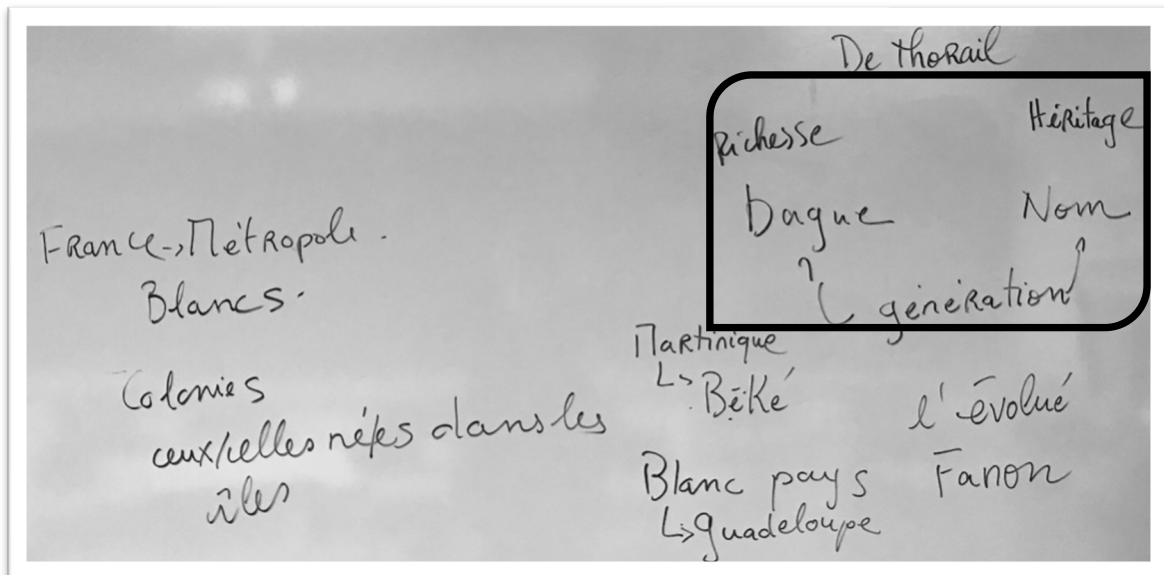 De ThoRail
Richesse
HéRitage
Dague
Nom
génération
FRance→MétRopole.
Blancs.
Colonies
ceux/celles né/es dans les
îles
MaRtinique
↳ Béké
l'évolué
Blanc pays
Fanon
↳ guadeloupe